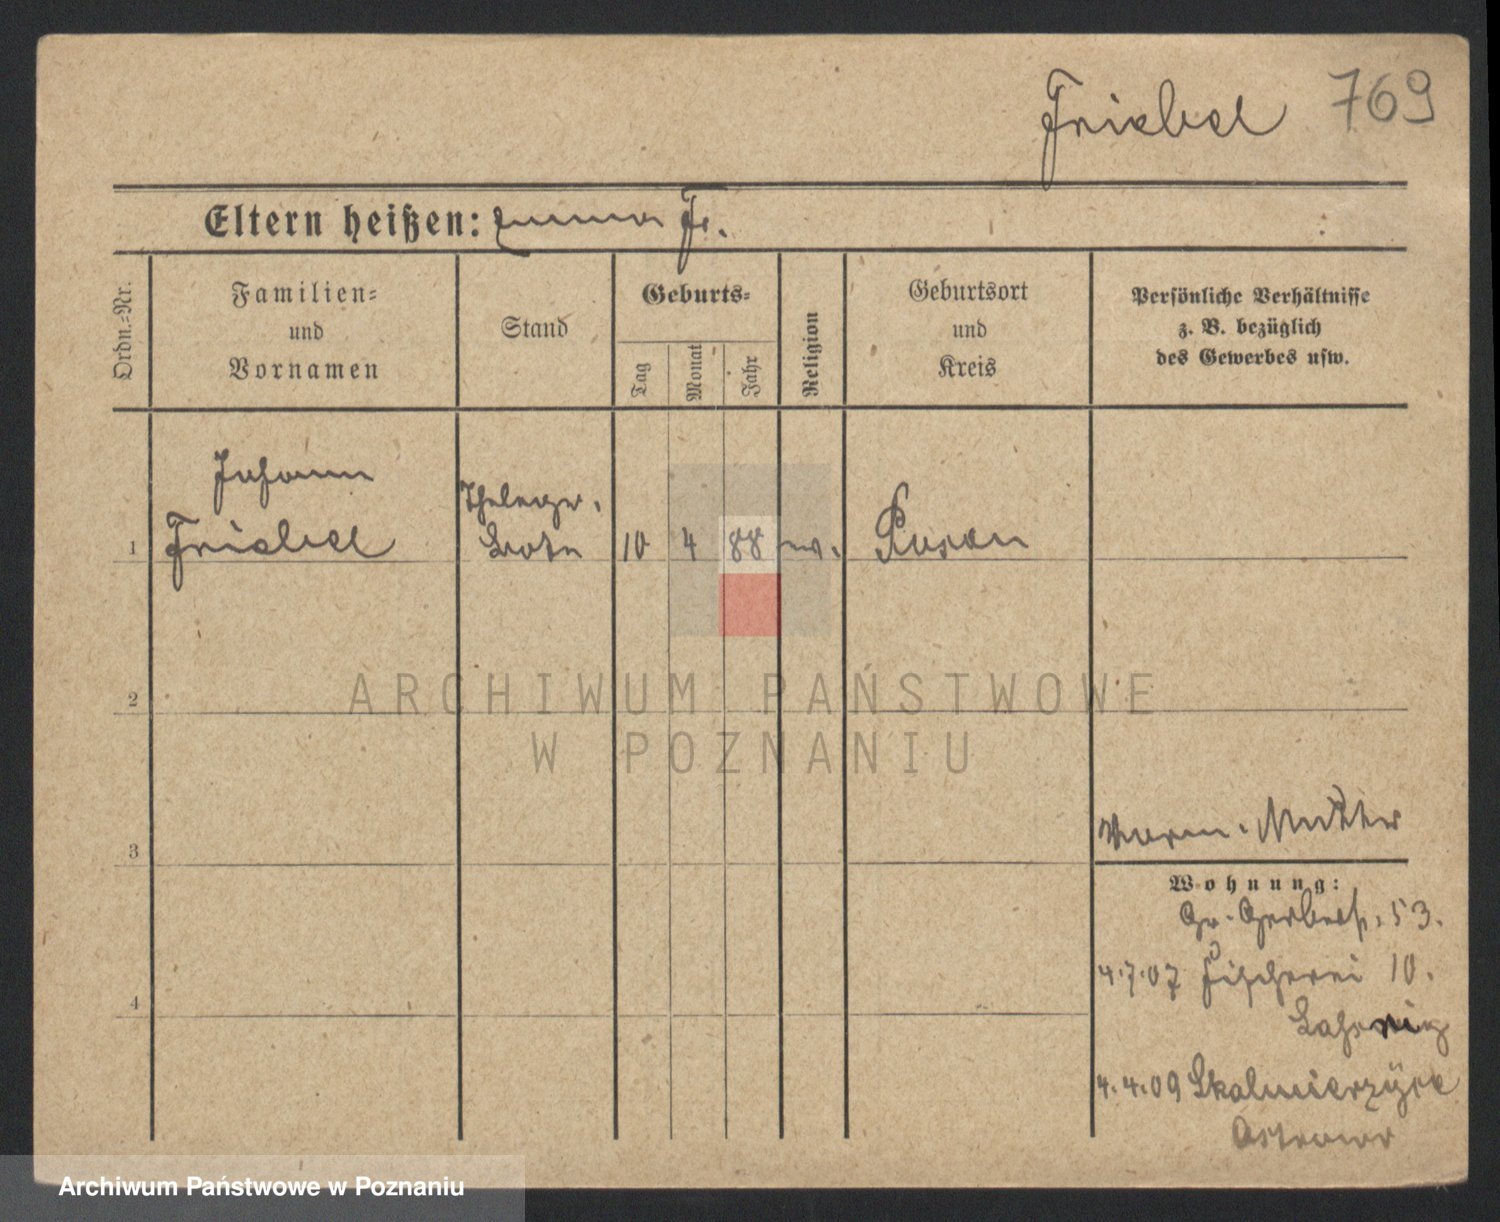 Friebel 769
Eltern heißen: Emma Fr.
Ordn.=Nr.
Familien=
und
Vornamen
Stand
Geburts=
Tag
Monat
Jahr
Religion
Geburtsort
und
Kreis
Persönliche Verhältnisse
z. B. bezüglich
des Gewerbes usw.
Johann
Friebel
Telegr.
Bote
1
10
4
88
ev.
Posen
2
ARCHIWUM PAŃSTWOWE
W POZNANIU
3
Vorm. Mutter
Wohnung:
Gr. Gerberstr. 53.
4.7.07 Fischerei 10.
4
4.4.09 Skalmierzyce
Ostrowo
Archiwum Państwowe w Poznaniu